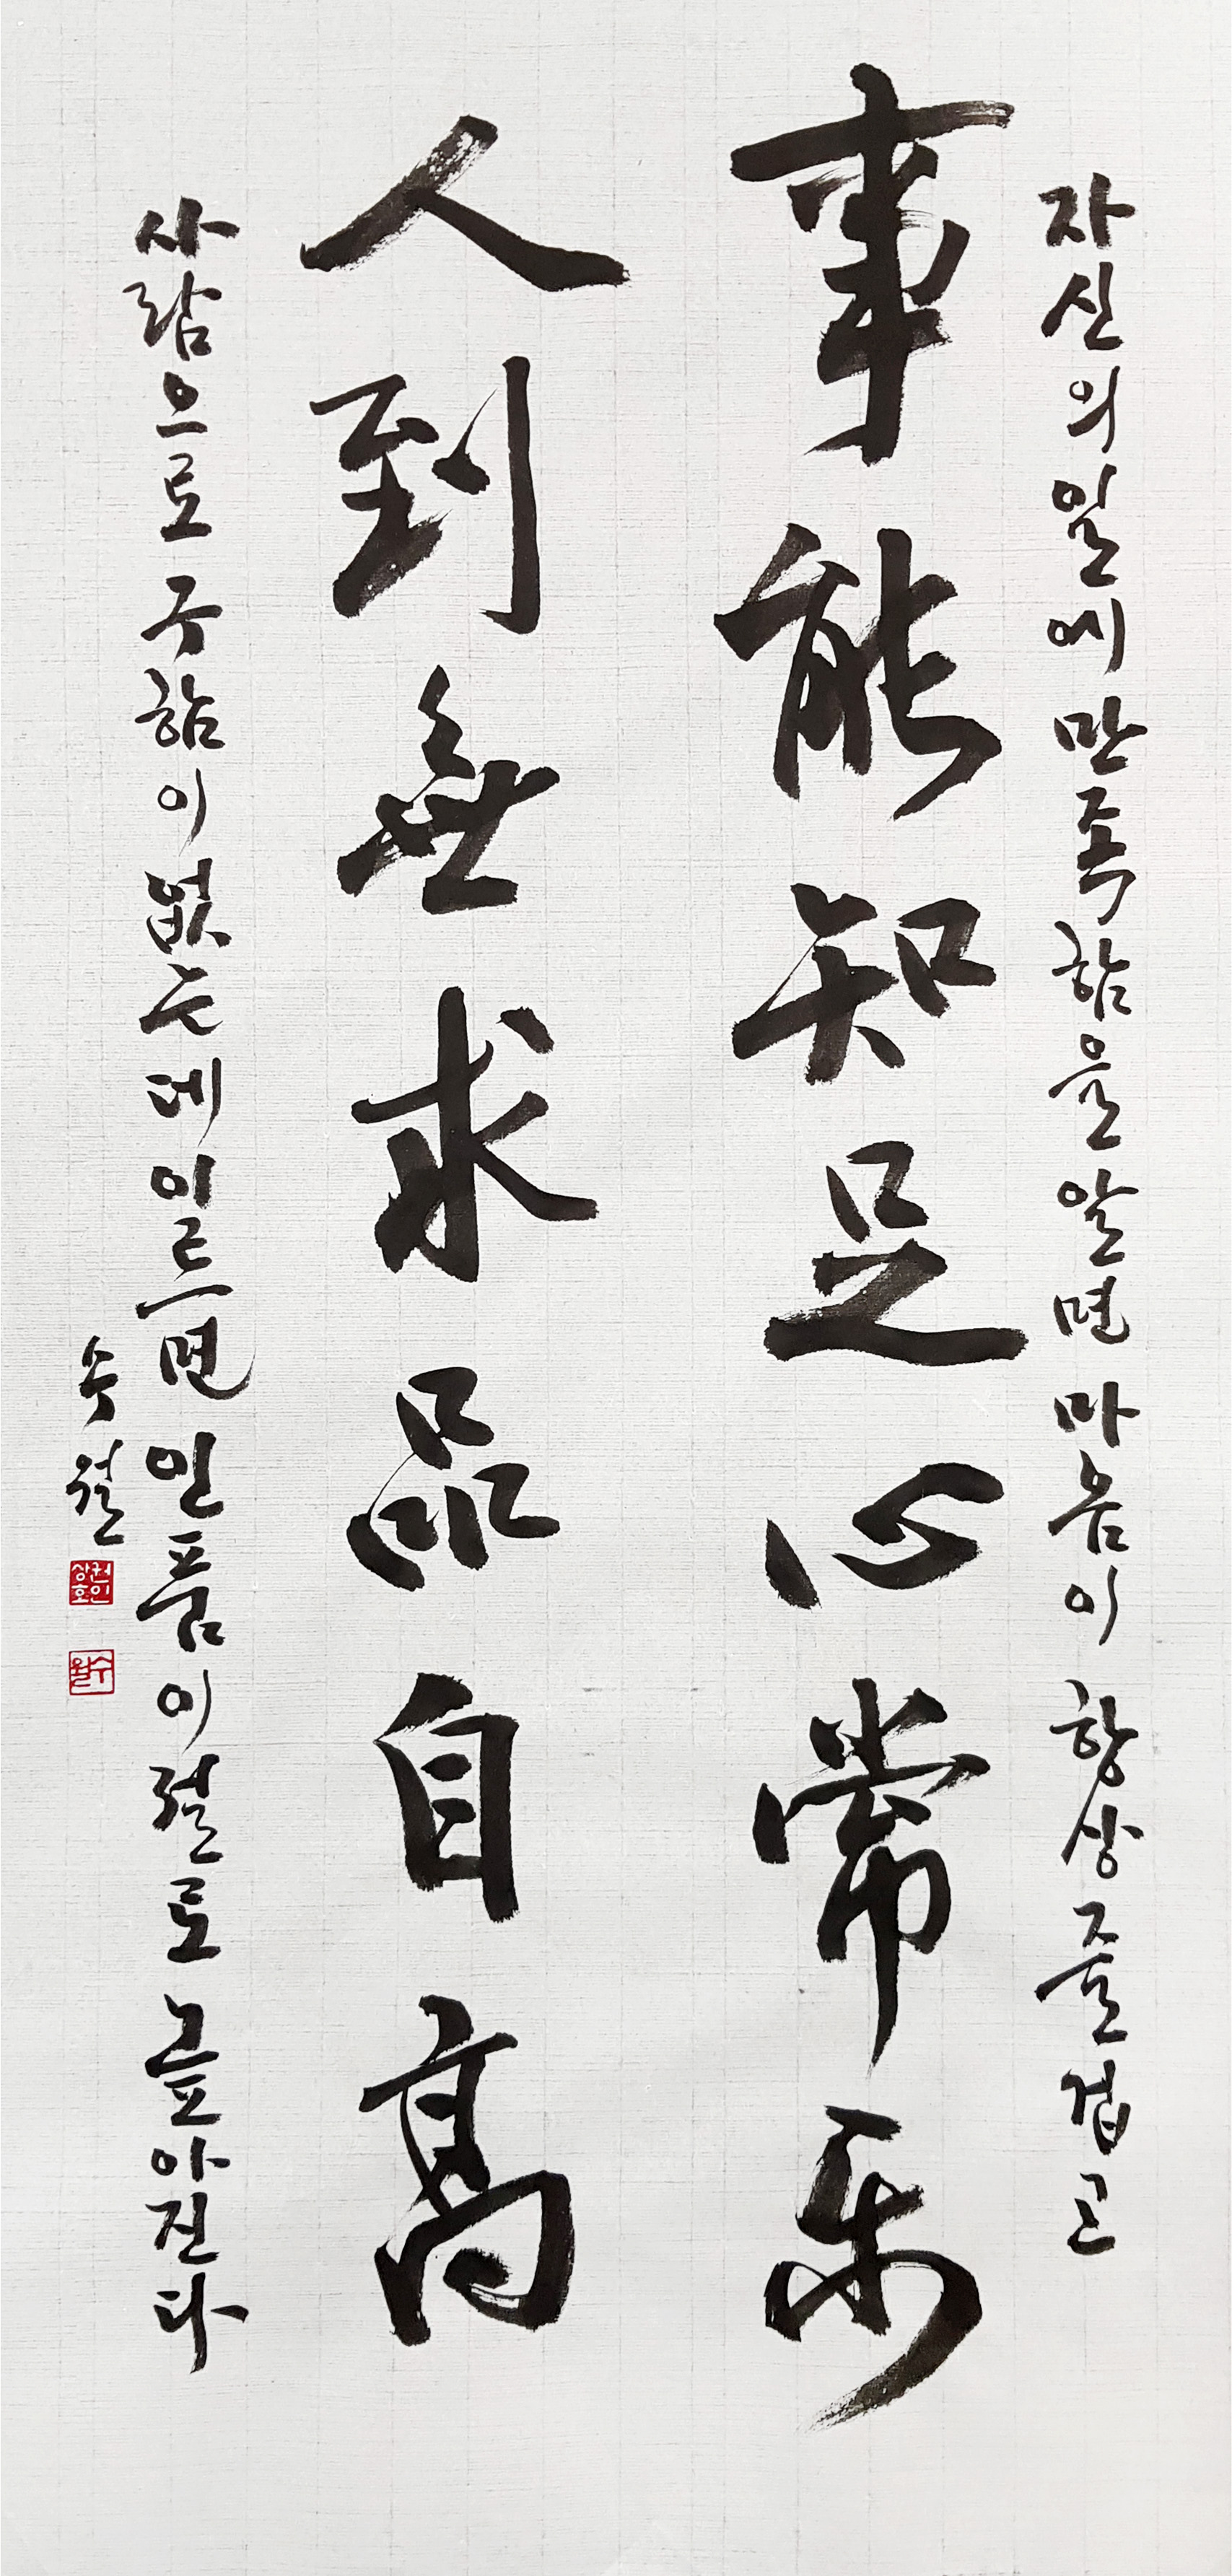 자신의 일에 만족함을 알면 마음이 항상 즐겁고
事能知足心常樂
人到無求品自高
사람으로 구함이 없는데 이르면 인품이 절로 높아진다
수월
권인
상호
수월